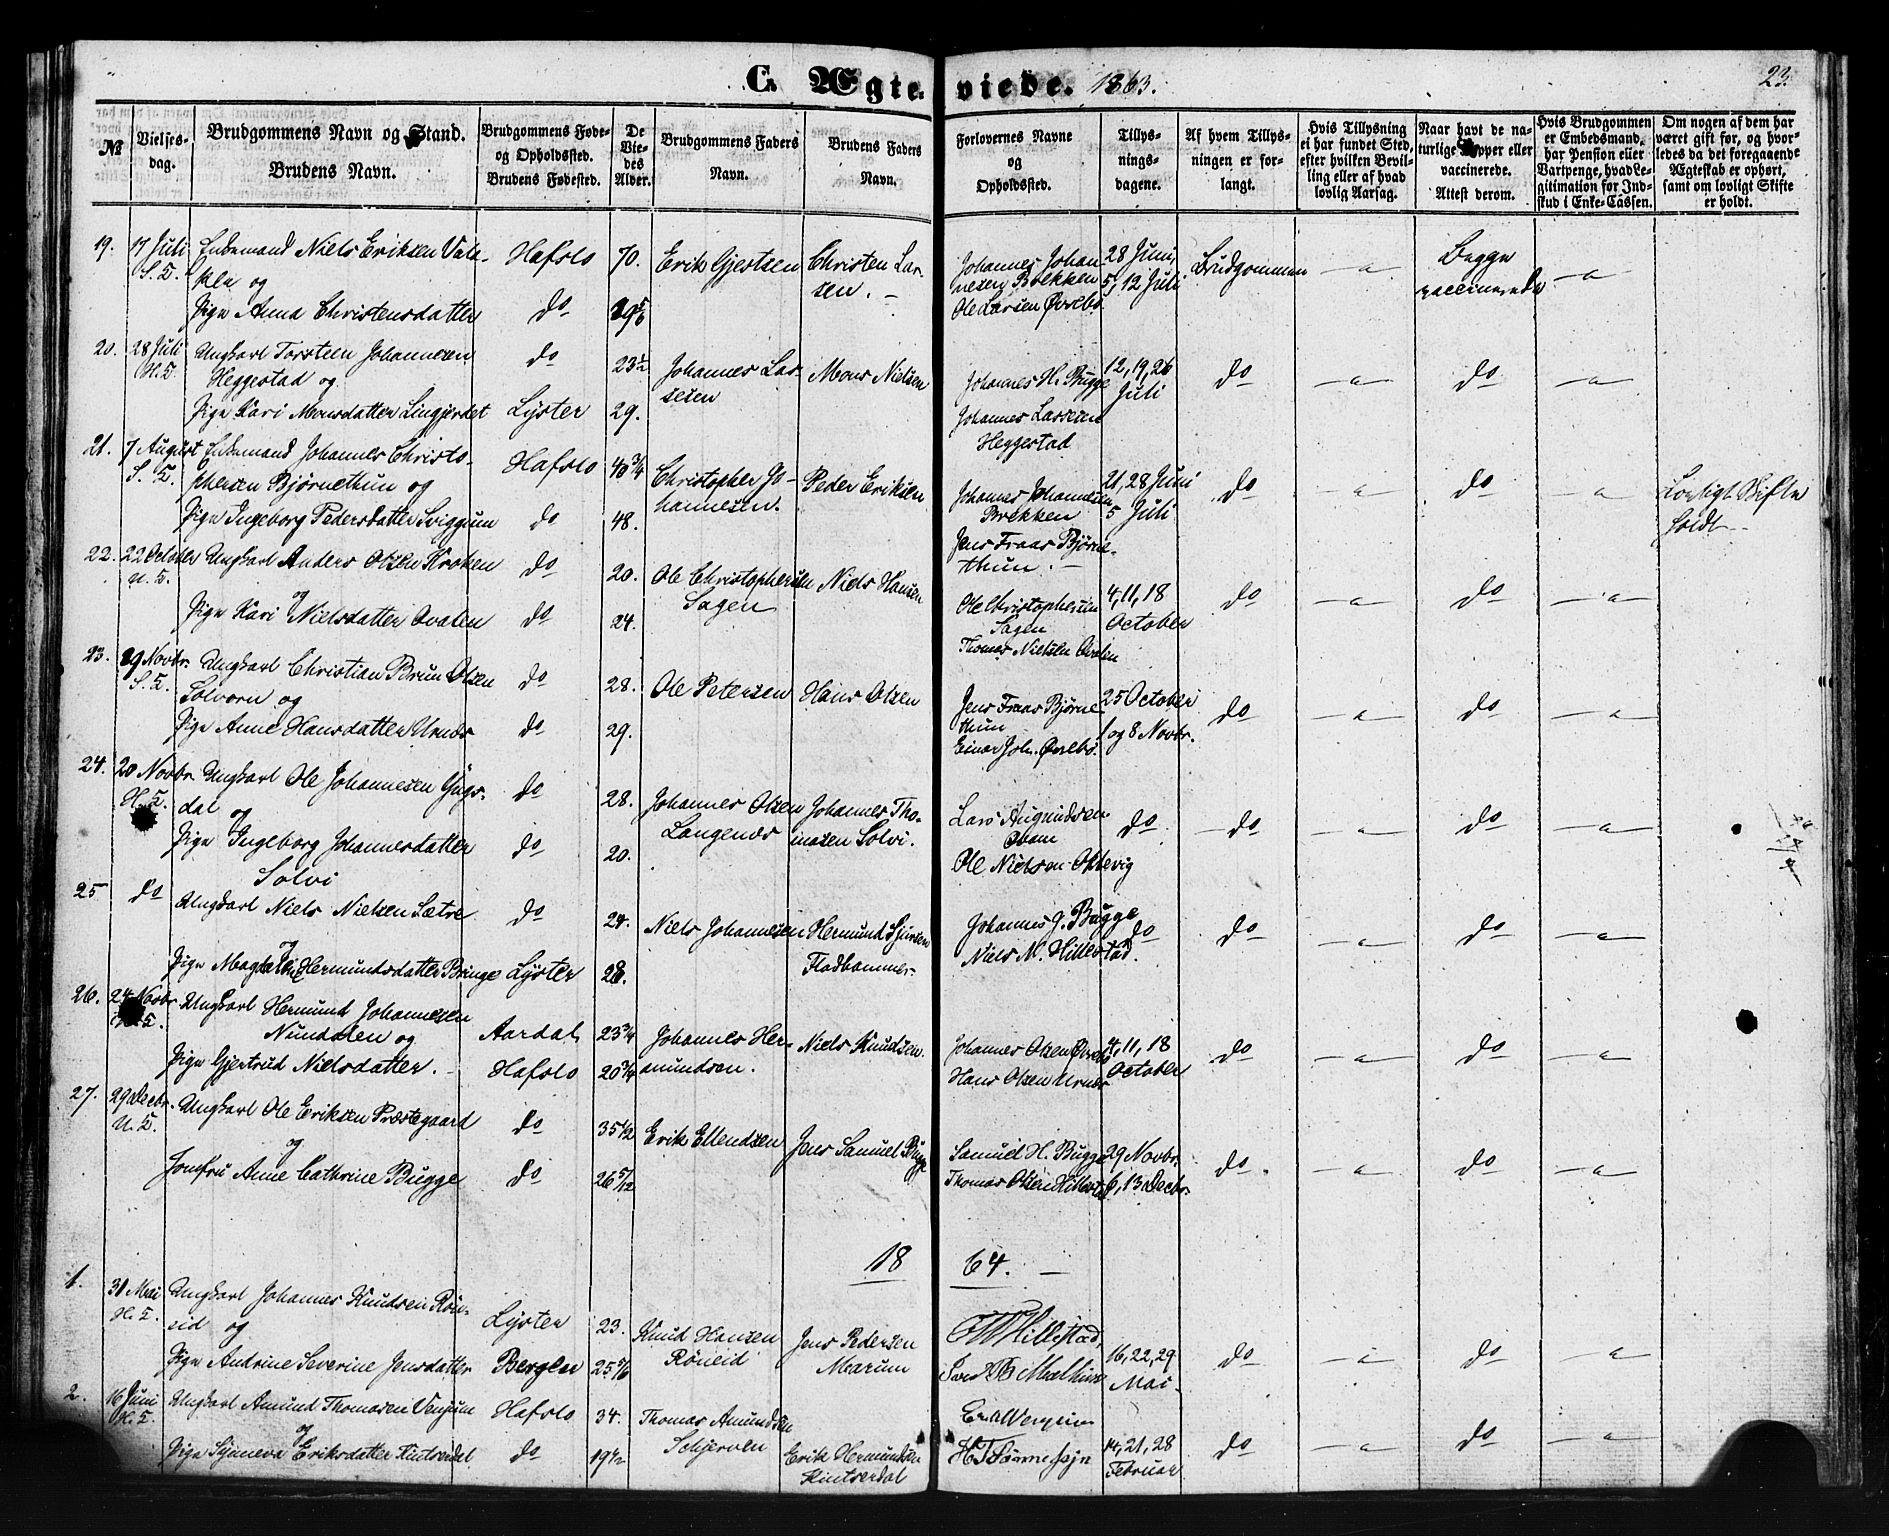 C. Ægte- viede. 1863.
23.
№
Vielses-
dag.
Brudgommens Navn og Stand.
Brudens Navn.
Brudgommens Føde-
og Opholdssted.
Brudens Fødested.
De
Vie-
des
Alder.
Brudgommens Faders
Navn.
Brudens Faders
Navn.
Forlovernes Navne
og
Opholdssted.
Tillys-
nings-
dagene.
Af hvem Tillys-
ningen er for-
langt.
Hvis Tillysning
ei har fundet Sted,
efter hvilken Bevil-
ling eller af hvad
lovlig Aarsag.
Naar havt de na-
turlige Kopper eller
vaccinerede.
Attest derom.
Hvis Brudgommen
er Embedsmand,
har Pension eller
Vartpenge, hvad Le-
gitimation for Ind-
skud i Enke-Cassen.
Om nogen af dem har
været gift før, og hvor-
ledes da det foregaaende
Ægteskab er ophørt,
samt om lovligt Skifte
er holdt.
19. 17 Juli Enkemand Niels Eriksen Hafslo 70. Erik Gjertsen Christen Lar-
S. K. og sen.
Pige Anna Christensdatter do
Johannes Johan- 28 Juni, Brudgommen — a — Begge — a —
nesen Brekken 5, 12 Juli vaccinerede
Ole Larsen Øvrebø
20. 28 Juli Ungkarl Torsteen Johannesen do 23½ Johannes Las- Mons Nielsen
H. K. Heggestad og sesen
Pige Kari Monsdatter Lingjerdet Lyster 29.
Johannes H. Bugge 12, 19, 26 do — a — do — a —
Johannes Lassesen Juli
Heggestad
21. 7 August Enkemand Johannes Christo- Hafslo 40¾ Christopher Jo- Peder Eriksen
S. K. phersen Bjørnethun og hannesen.
Pige Ingeborg Pedersdatter Sviggum do 48.
Johannes Johannesen 21, 28 Juni do — a — do — a — Lovligt Skifte
Brekken 5 Juli holdt
Jens Fraas Bjørne-
thun.
22. 22 October Ungkarl Anders Olsen Kroken do 20. Ole Christophersen Niels Hansen
U. K. og Sagen
Pige Kari Nielsdatter Qvalen do 24.
Ole Christophersen 4, 11, 18 do — a — do — a —
Sagen October
Thomas Nielsen Qvalen
23. Novbr. Ungkarl Christian Brun Olsen do 28. Ole Petersen Hans Olsen
S. K. Solvorn og
Pige Anne Hansdatter Urnæs do 29.
Jens Fraas Bjørne- 25 October do — a — do — a —
thun 1 og 8 Novbr.
Einar Joh. Øvrebø.
24. 20 Novbr. Ungkarl Ole Johannesen Yngs- do 28. Johannes Olsen Johannes Tho-
H. K. dal og Langenæs masen Solvi.
Pige Ingeborg Johannesdatter do 20.
Solvi
Lars Augundsen do do — a — do — a —
Qvam
Ole Nielsen
25 do Ungkarl Niels Nielsen Sætre do 24. Niels Johannesen Hermund Sjursen
og Fladhammer
Pige Hermundsdatter Bringe Lyster 28.
Johannes J. Bugge do do — a — do — a —
Niels M. Hillestad.
26. 24 Novbr. Ungkarl Hermund Johannesen Aardal 23¾ Johannes Her- Niels Knudsen.
Nundalen og mundsen.
Pige Gjertrud Nielsdatter. Hafslo 20¾
Johannes Olsen 4, 11, 18 do — a — do — a —
Hans Olsen Urnæs October
27. 29 Decbr. Ungkarl Ole Eriksen Præstegaard do 35½ Erik Ellendsen Jens Samuel Bugge
U. K. og
Jomfru Anne Cathrine Bugge do 26 5/12
Samuel H. Bugge 29 Novbr. do — a — do — a —
Thomas Olsen Hillestad 6, 13 Decbr.
18 64.
1. 31 Mai Ungkarl Johannes Knudsen Røn- Lyster 23. Knud Hansen Jens Pedersen
H. K. eid og Røneid Marum
Pige Andrine Severine Jensdatter Bergen 25 5/6
Hillestad, 16, 22, 29 do — a — do — a —
Mai
2. 16 Juni Ungkarl Amund Thomasen Venjum Hafslo 34. Thomas Amundsen Erik Hermundsen
H. K. og Schjerven Kintserdal
Pige Synneva Eriksdatter Kintserdal do 19½
14, 21, 28 do — a — do — a —
Februar